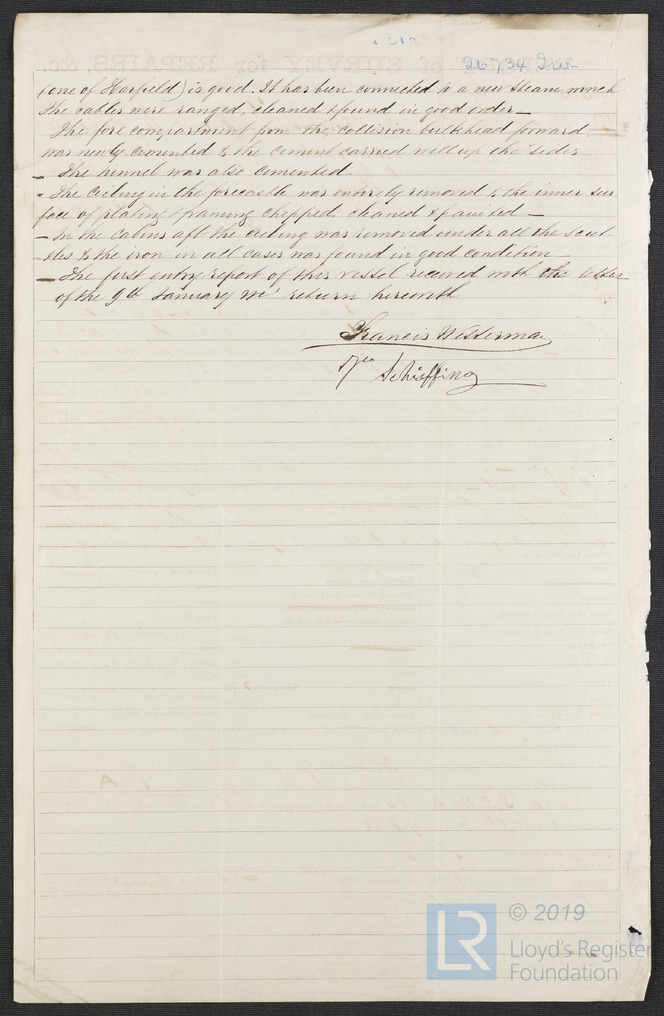 26,134 Iron
(one of Harfield) is good. It has been connected to a new steam winch
The cables were ranged, cleaned & found in good order —
The fore compartment from the collision bulkhead forward
was newly cemented & the cement carried well up the sides
— The funnel was also cemented
- The ceiling in the forecastle was entirely removed & the inner sur
face of plating & framing chipped cleaned & painted —
— In the cabins aft the ceiling was removed under all the scut
-tles & the iron in all cases was found in good condition —
— The first entry report of this vessel received with the letter
of the 9th January we return herewith
Francis Westerma
Schiffing
© 2019
LR Lloyd's Register
Foundation